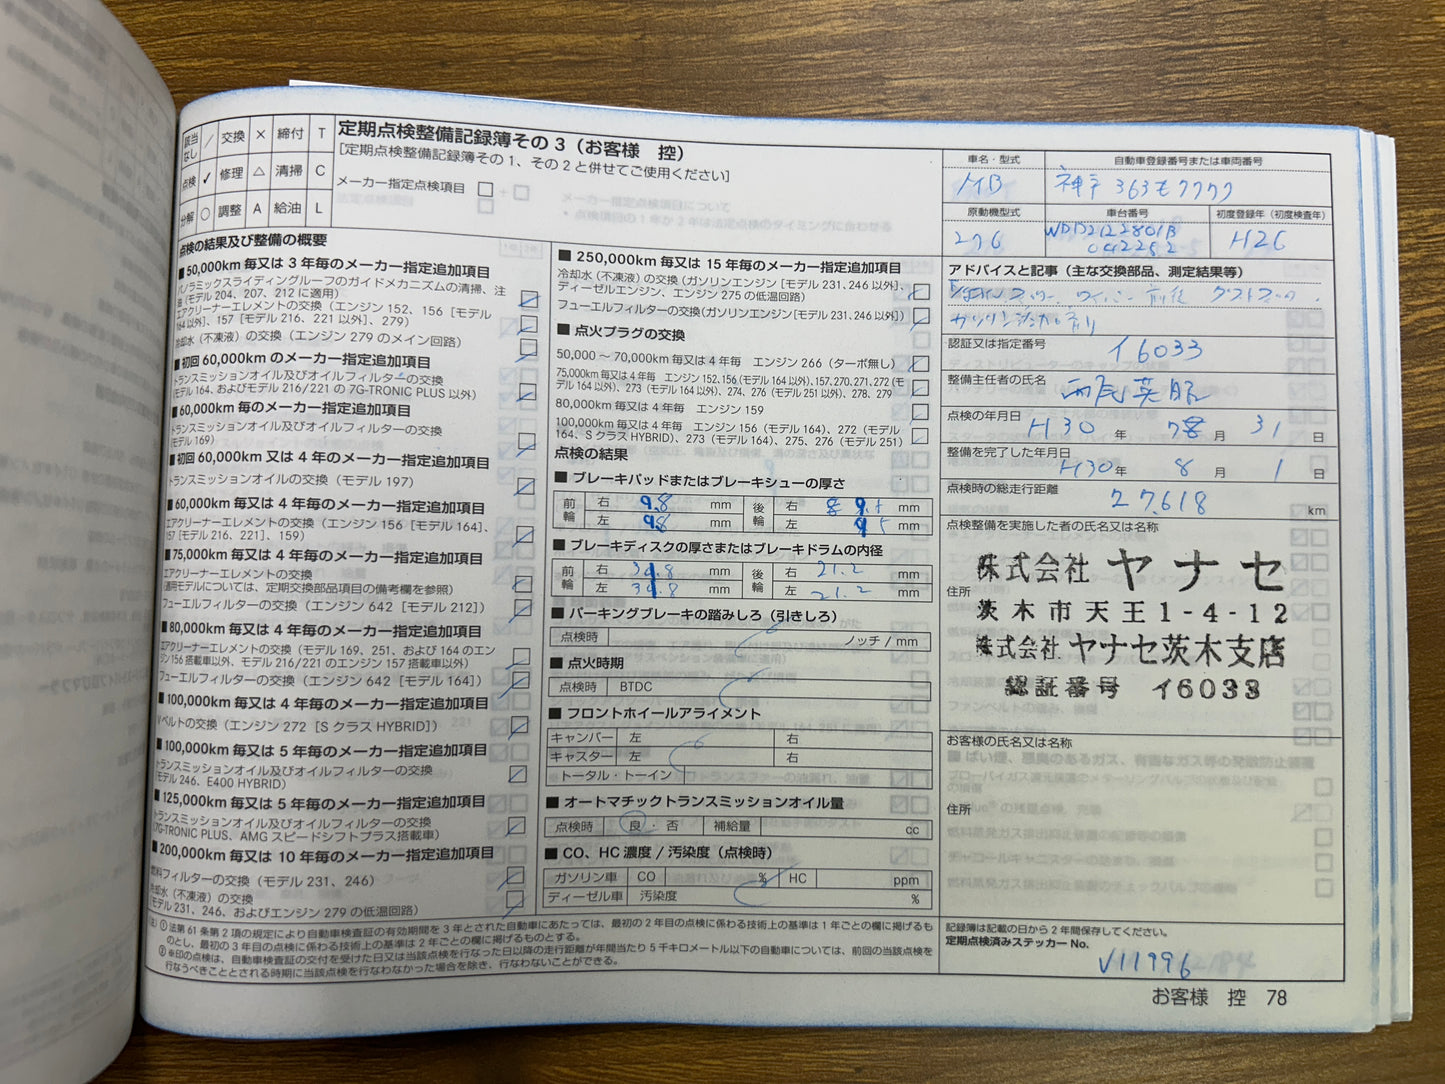 定期点検整備記録簿その3（お客様　控）
［定期点検整備記録簿その1、その2と併せてご使用ください］
該当なし ／ 交換 × 締付 T
点検 ✓ 修理 △ 清掃 C
分解 ○ 調整 A 給油 L
メーカー指定点検項目 □ + □
点検の結果及び整備の概要
■ 50,000km 毎又は 3 年毎のメーカー指定追加項目
パノラミックスライディングルーフのガイドメカニズムの清掃、注
油（モデル 204、207、212 に適用）
エアクリーナーエレメントの交換（エンジン 152、156［モデル
164 以外］、157［モデル 216、221 以外］、279）
冷却水（不凍液）の交換（エンジン 279 のメイン回路）
■ 初回 60,000km のメーカー指定追加項目
トランスミッションオイル及びオイルフィルターの交換
（モデル 164、およびモデル 216/221 の 7G-TRONIC PLUS 以外）
■ 60,000km 毎のメーカー指定追加項目
トランスミッションオイル及びオイルフィルターの交換
（モデル 169）
■ 初回 60,000km 又は 4 年毎のメーカー指定追加項目
トランスミッションオイルの交換（モデル 197）
■ 60,000km 毎又は 4 年毎のメーカー指定追加項目
エアクリーナーエレメントの交換（エンジン 156［モデル 164］、
157［モデル 216、221］、159）
■ 75,000km 毎又は 4 年毎のメーカー指定追加項目
エアクリーナーエレメントの交換
（適用モデルについては、定期交換部品項目の備考欄を参照）
フューエルフィルターの交換（エンジン 642［モデル 212］）
■ 80,000km 毎又は 4 年毎のメーカー指定追加項目
エアクリーナーエレメントの交換（モデル 169、251、および 164 のエン
ジン156 搭載車以外、モデル 216/221 のエンジン 157 搭載車以外）
フューエルフィルターの交換（エンジン 642［モデル 164］）
■ 100,000km 毎又は 4 年毎のメーカー指定追加項目
Vベルトの交換（エンジン 272［S クラス HYBRID］）
■ 100,000km 毎又は 5 年毎のメーカー指定追加項目
トランスミッションオイル及びオイルフィルターの交換
（モデル 246、E400 HYBRID）
■ 125,000km 毎又は 5 年毎のメーカー指定追加項目
トランスミッションオイル及びオイルフィルターの交換
（7G-TRONIC PLUS、AMG スピードシフトプラス搭載車）
■ 200,000km 毎又は 10 年毎のメーカー指定追加項目
燃料フィルターの交換（モデル 231、246）
冷却水（不凍液）の交換
（モデル 231、246、およびエンジン 279 の低温回路）
■ 250,000km 毎又は 15 年毎のメーカー指定追加項目
冷却水（不凍液）の交換（ガソリンエンジン［モデル 231、246 以外］、
ディーゼルエンジン、エンジン 275 の低温回路）
フューエルフィルターの交換（ガソリンエンジン［モデル 231、246 以外］）
■ 点火プラグの交換
50,000 ～ 70,000km 毎又は 4 年毎　エンジン 266（ターボ無し）
75,000km 毎又は 4 年毎　エンジン 152、156（モデル 164 以外）、157、270、271、272（モ
デル 164 以外）、273（モデル 164 以外）、274、276（モデル 251 以外）、278、279
80,000km 毎又は 4 年毎　エンジン 159
100,000km 毎又は 4 年毎　エンジン 156（モデル 164）、272（モデル
164、S クラス HYBRID）、273（モデル 164）、275、276（モデル 251）
点検の結果
■ ブレーキパッドまたはブレーキシューの厚さ
前輪 右 9.8 mm 後輪 右 9.5 mm
左 9.8 mm 左 9.5 mm
■ ブレーキディスクの厚さまたはブレーキドラムの内径
前輪 右 31.8 mm 後輪 右 21.2 mm
左 31.8 mm 左 21.2 mm
■ パーキングブレーキの踏みしろ（引きしろ）
点検時 ノッチ / mm
■ 点火時期
点検時 BTDC
■ フロントホイールアライメント
キャンバー 左 右
キャスター 左 右
トータル・トーイン
■ オートマチックトランスミッションオイル量
点検時 良・否 補給量 cc
■ CO、HC 濃度 / 汚染度（点検時）
ガソリン車 CO % HC ppm
ディーゼル車 汚染度 %
車名・型式 自動車登録番号または車両番号
MB 神戸 363 も 7777
原動機型式 車台番号 初度登録年（初度検査年）
276 WDD2122801B
042282 H26
アドバイスと記事（主な交換部品、測定結果等）
ワイパー 前後 ダストマック
ガソリン添加剤
認証又は指定番号
イ6033
整備主任者の氏名
点検の年月日
H30 年 7 月 31 日
整備を完了した年月日
H30 年 8 月 1 日
点検時の総走行距離
27,618 km
点検整備を実施した者の氏名又は名称
株式会社 ヤナセ
住所
茨木市天王1-4-12
株式会社 ヤナセ茨木支店
認証番号 イ6033
お客様の氏名又は名称
住所
（注）① 法第 61 条第 2 項の規定により自動車検査証の有効期間を 3 年とされた自動車にあたっては、最初の 2 年目の点検に係わる技術上の基準は 1 年ごとの欄に掲げるも
のとし、最初の 3 年目の点検に係わる技術上の基準は 2 年ごとの欄に掲げるものとする。
② ※印の点検は、自動車検査証の交付を受けた日又は当該点検を行なった日以降の走行距離が年間当たり 5 千キロメートル以下の自動車については、前回の当該点検を
行なうべきこととされる時期に当該点検を行なわなかった場合を除き、行なわないことができる。
記録簿は記載の日から 2 年間保存してください。
定期点検済みステッカー No.
V11996
お客様　控　78